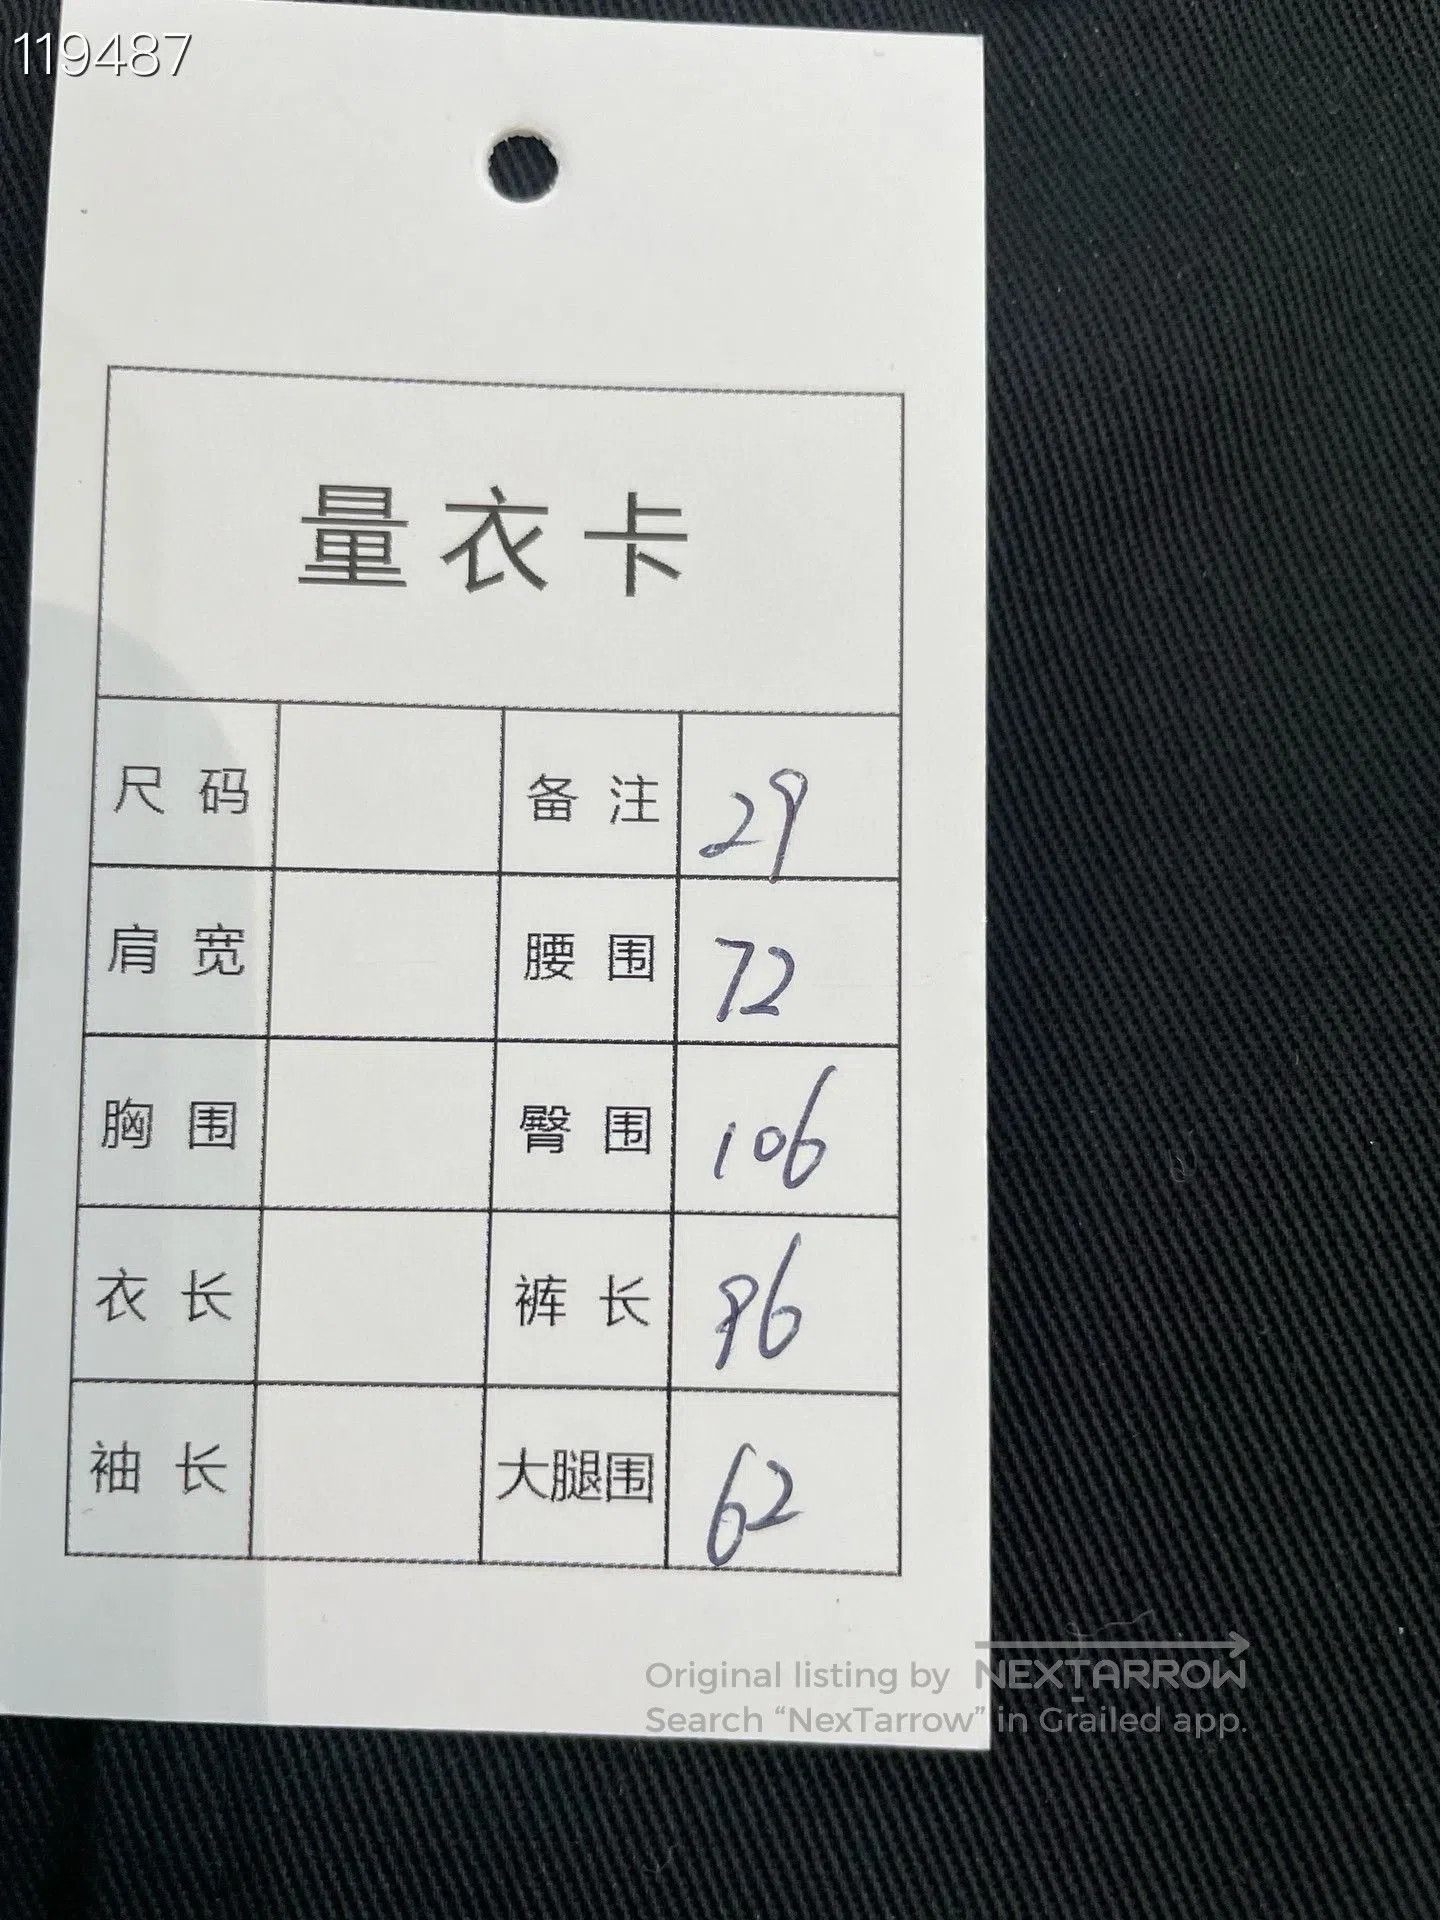 119487
量衣卡
尺码 备注 29
肩宽 腰围 72
胸围 臀围 106
衣长 裤长 96
袖长 大腿围 62
Original listing by NEXTARROW
Search “NexTarrow” in Grailed app.